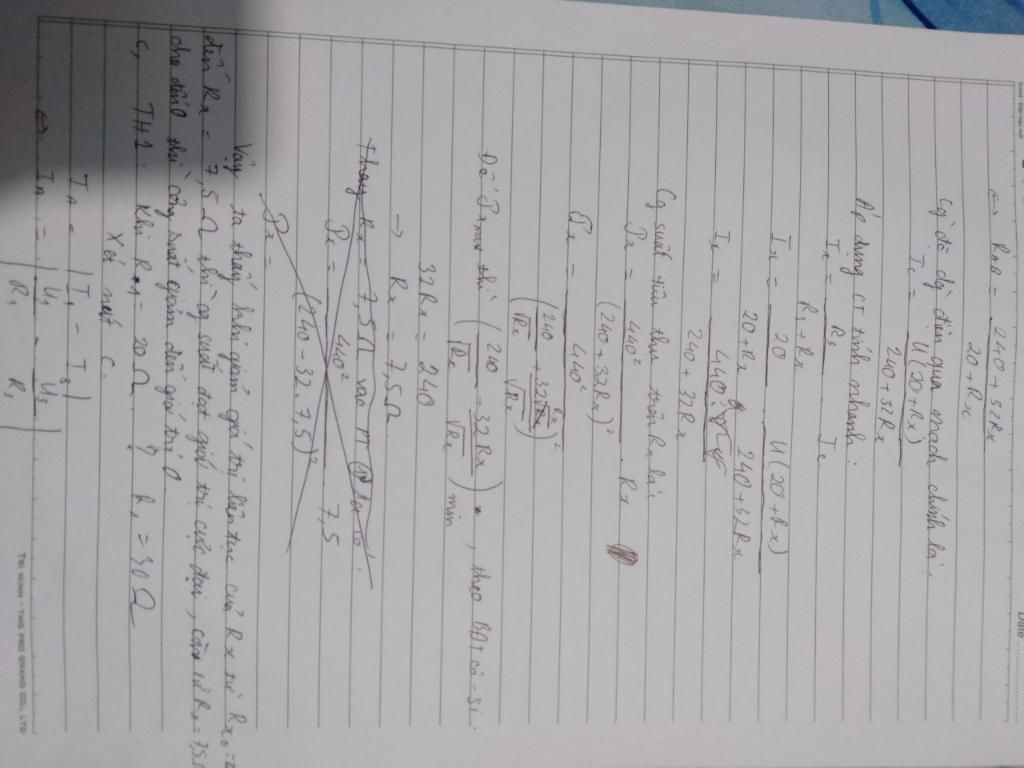 Date
⇔ RAB = (240 + 32Rx) / (20 + Rx)
Cg độ dg điện qua mạch chính là:
Ic = U(20 + Rx) / (240 + 32Rx)
Áp dụng CT tính nhanh:
Ix = R3 / (R3 + Rx) . Ic
Ix = 20 / (20 + Rx) . U(20 + Rx) / (240 + 32Rx)
Ix = 440 / (240 + 32Rx)
Cg suất tiêu thụ trên Rx là:
Px = 440² / (240 + 32Rx)² . Rx
Px = 440² / (240/√Rx + 32Rx/√Rx)²
Để Pxmax thì (240/√Rx + 32Rx/√Rx) min, theo BĐT cô-si.
32Rx = 240
→ Rx = 7,5 Ω
Thay Rx = 7,5 Ω vào
Px = 440² / (240 - 32.7,5)² . 7,5
Px =
Vậy ta thấy khi giảm giá trị liên tục của Rx từ Rx0 =
đến Rx = 7,5 Ω thì cg suất đạt giá trị cực đại, còn từ Rx = 7,5
cho đến 0 thì công suất giảm dần giá trị 0.
c, TH1: Khi = 20 Ω R1 = 30 Ω
Xét nút C.
IA = |I1 - I3|
⇔ IA = |U1/R1 - U3/R3|
TRI HANH - THE PEND BRAND CO., LTD